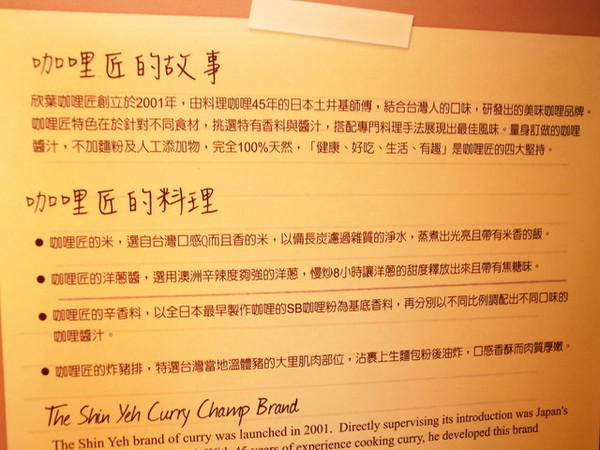 咖哩匠的故事
欣葉咖哩匠創立於2001年，由料理咖哩45年的日本土井基師傅，結合台灣人的口味，研發出的美味咖哩品牌。
咖哩匠特色在於針對不同食材，挑選特有香料與醬汁，搭配專門料理手法展現出最佳風味。量身訂做的咖哩
醬汁，不加麵粉及人工添加物，完全100%天然，「健康、好吃、生活、有趣」是咖哩匠的四大堅持。
咖哩匠的料理
● 咖哩匠的米，選自台灣口感Q而且香的米，以備長炭濾過雜質的淨水，蒸煮出光亮且帶有米香的飯。
● 咖哩匠的洋蔥醬，選用澳洲辛辣度夠強的洋蔥，慢炒8小時讓洋蔥的甜度釋放出來且帶有焦糖味。
● 咖哩匠的辛香料，以全日本最早製作咖哩的SB咖哩粉為基底香料，再分別以不同比例調配出不同口味的
咖哩醬汁。
● 咖哩匠的炸豬排，特選台灣當地溫體豬的大里肌肉部位，沾裹上生麵包粉後油炸，口感香酥而肉質厚嫩。
The Shin Yeh Curry Champ Brand
The Shin Yeh brand of curry was launched in 2001. Directly supervising its introduction was Japan's
With 45 years of experience cooking curry, he developed this brand